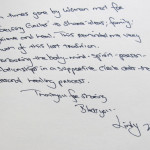 times gone by women met for
Circles to share ideas, family,
and heal. This reminded me very
of this lost tradition.
the body-mind-spirit-person-
in a supportive circle aids the
healing process.
Thankyou for sharing
Blessings